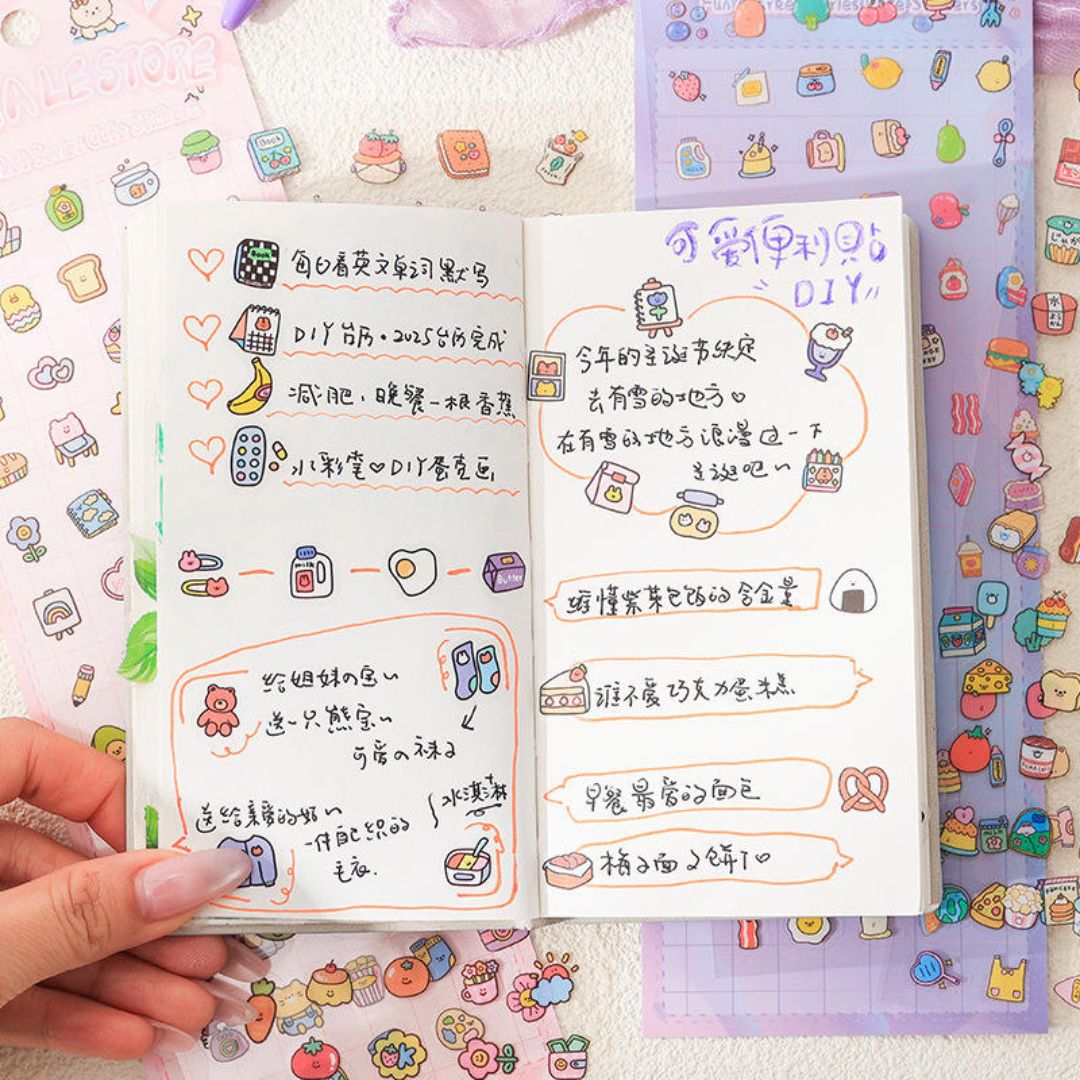 ALE STORE
Book
每日看英文单词默写
DIY台历。2025台历完成
减肥、晚餐一根香蕉
水彩笔♡DIY蛋壳画
milk
Butter
给姐妹の宝~
送一只熊宝~
可爱の袜子
送给亲爱的好~
一件自己织的
毛衣.
冰淇淋
可爱便利貼
DIY
今年的圣诞节决定
去有雪的地方♡
在有雪的地方浪漫过一下
圣诞吧~
谁懂紫菜包饭的含金量
谁不爱巧克力蛋糕
早餐最爱的面包
Book
PANCAKE